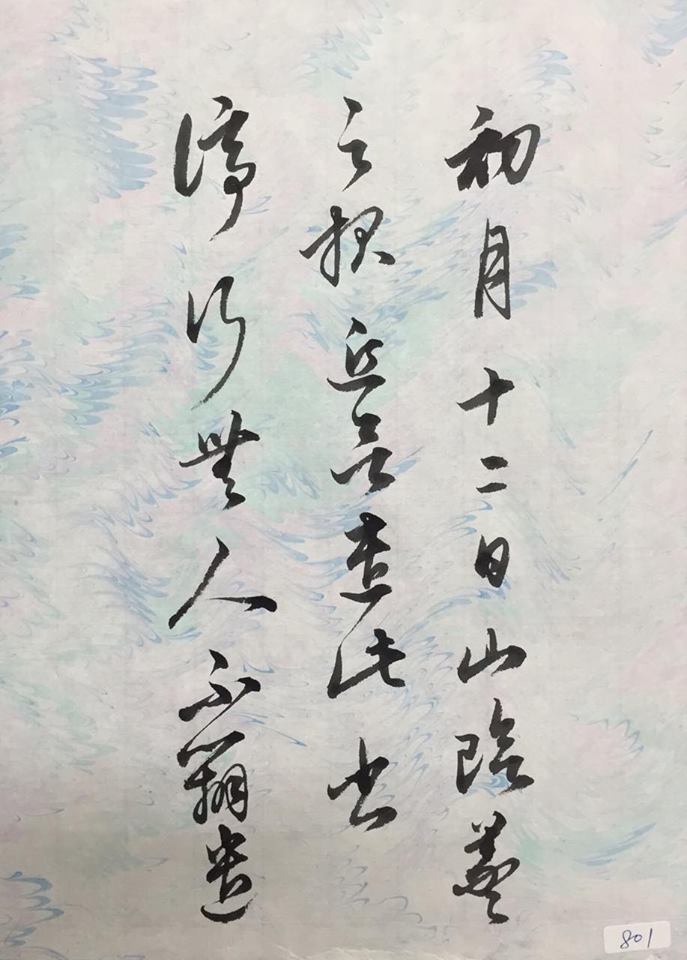 初月十二日山陰羲
之報近欲遣此書
停行無人不辦遣
801